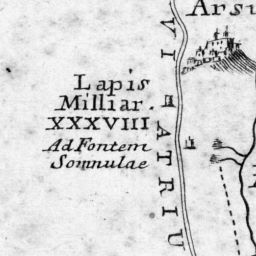 Arsu
Lapis
Milliar.
XXXVIII
Ad Fontem
Somnulae
VI
ATRIU